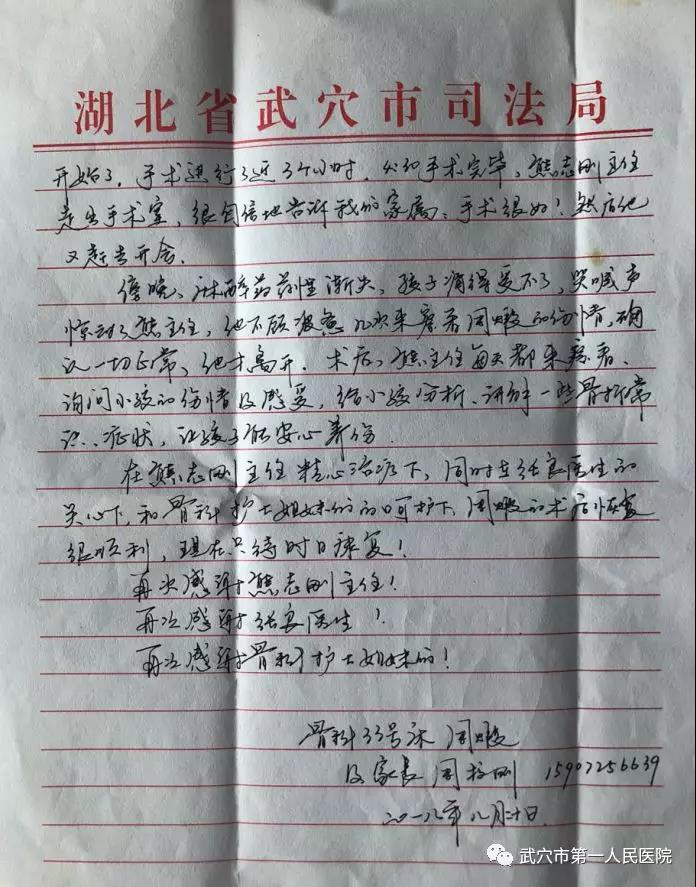 湖北省武穴市司法局
开始了。手术进行了近3个小时。手术完毕,熊志刚主任
走出手术室,很自信地告诉我的家属:手术很好!然后他
又赶去开会。
傍晚,麻醉药药性渐失,孩子痛得受不了,哭喊声
惊动了熊主任,他不顾疲惫几次来察看周 的伤情,确
认一切正常,他才离开。术后,熊主任每天都来察看、
询问小孩的伤情及感受,给小孩分析、讲解一些骨折常
识、症状,让孩子能安心养伤。
在熊志刚主任精心治疗下,同时在张良医生的
关心下,和骨科护士姐妹们的呵护下,周 的术后恢复
很顺利,现在只待时日康复!
再次感谢熊志刚主任!
再次感谢张良医生!
再次感谢骨科护士姐妹们!
骨科33号床 周
及家长 周 刚 15907256639
二0一八年八月二十日
武穴市第一人民医院